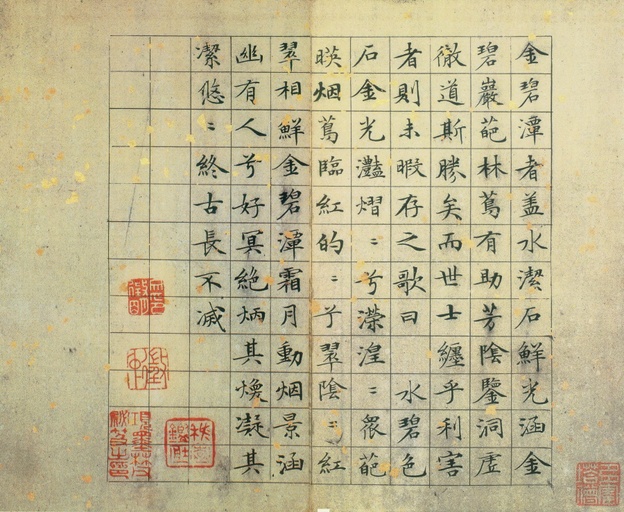 金碧潭者盖水潔石鮮光涵金
碧巖葩林蔦有助芳陰鑒洞虚
徹道斯勝矣而世士纏乎利害
者則未暇存之歌曰 水碧色
石金光灩熠〻兮瀠湟〻泉葩
暎烟蔦臨紅的〻兮翠陰〻紅
翠相鮮金碧潭霜月動烟景涵
幽有人兮好冥絶炳其煥凝其
潔悠〻終古長不滅
項墨林